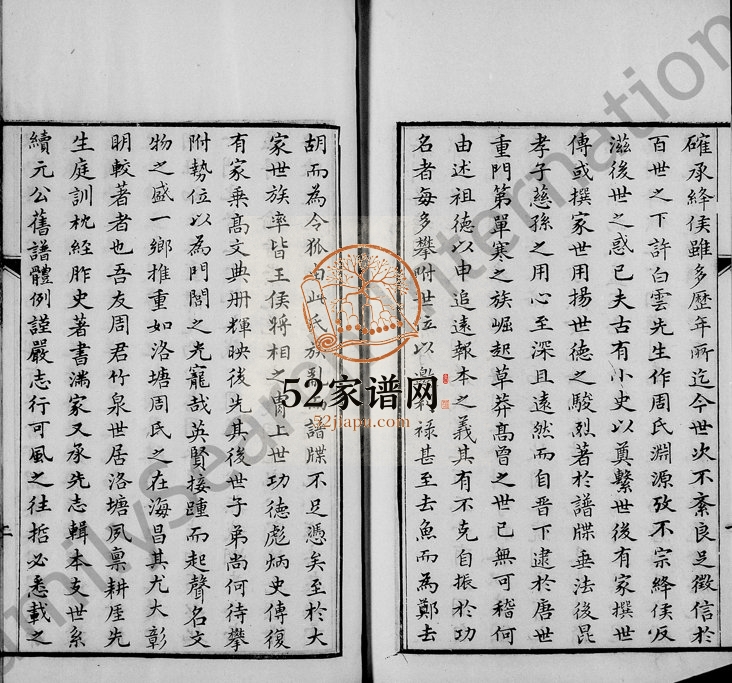 確承絳侯雖多歷年所迄今世次不紊良足徵信於
百世之下許白雲先生作周氏淵源攷不宗絳侯反
滋後世之惑已夫古有小史以奠繫世後有家撰世
傳或撰家世用揚世德之駿烈著於譜牒垂法後昆
孝子慈孫之用心至深且遠然而自晋下逮於唐世
重門第單寒之族崛起草莽高曾之世已無可稽何
由述祖德以申追遠報本之義其有不克自振於功
名者每多攀附世位以激利祿甚至去魚而為鄭去
胡而為令狐由此氏族譜牒不足憑矣至於大
家世族率皆王侯將相之冑上世功德彪炳史傳復
有家乘高文典冊輝映後先其後世子弟尚何待攀
附勢位以為門閭之光寵哉英賢接踵而起聲名文
物之盛一鄉推重如洛塘周氏之在海昌其尤大彰
明較著者也吾友周君竹泉世居洛塘夙禀耕厓先
生庭訓枕經胙史著書滿家又承先志輯本支世系
續元公舊譜體例謹嚴志行可風之往哲必悉載之
52家谱网
52jiapu.com
FamilySearch International